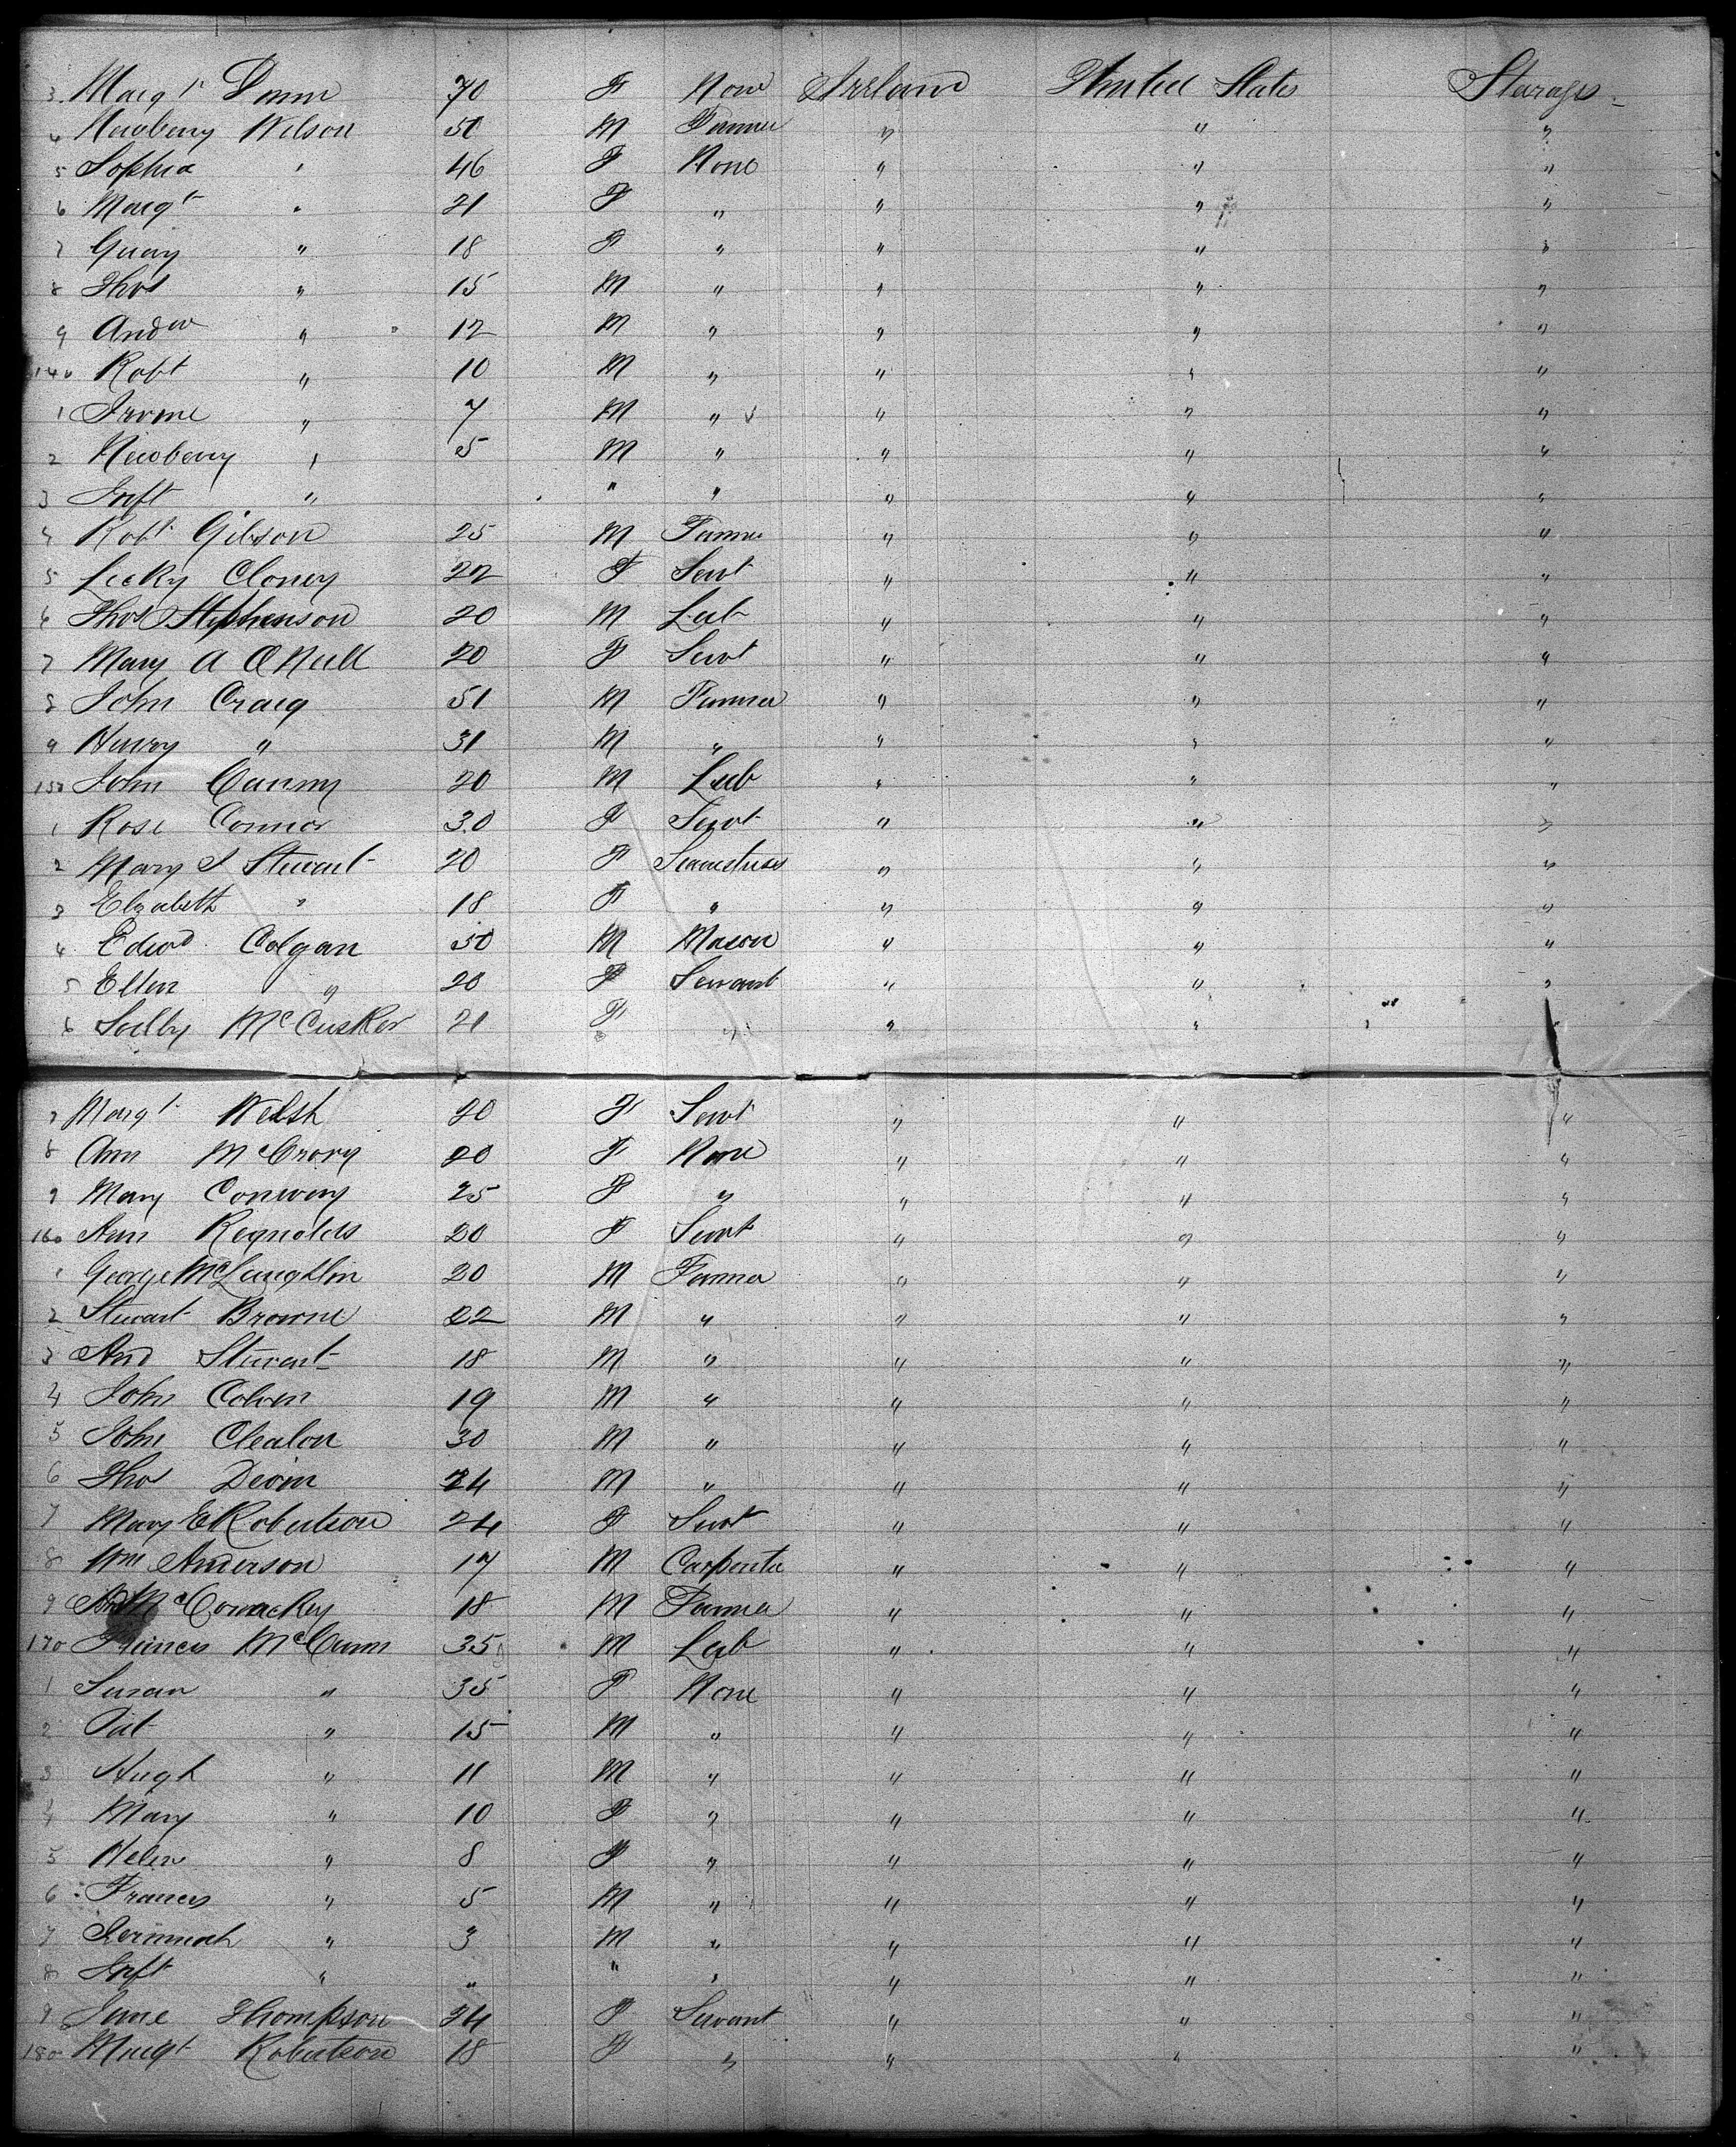 3 Margt Dunn 70 F None Ireland United States Steerage
4 Newberry Wilson 50 M Farmer " " "
5 Sophia " 46 F None " " "
6 Margt " 21 F " " " "
7 18 F " " " "
8 Thos " 15 M " " " "
9 Andw " 12 M " " " "
140 Robt " 10 M " " " "
1 Irvine " 7 M " " " "
2 Newberry " 5 M " " " "
3 Inft " " " " " "
4 Robt Gibson 25 M Farmer " " "
5 Cloney 22 F Servt " " "
6 Thos Stephenson 20 M Lab " " "
7 Mary A O'Neill 20 F Servt " " "
8 John Craig 51 M Farmer " " "
9 Henry " 31 M " " " "
150 John Canny 20 M Lab " " "
1 Rose Connor 30 F Servt " " "
2 Mary J Stewart 20 F Seamstress " " "
3 Elizabeth " 18 F " " " "
4 Edwd Colgan 30 M Mason " " "
5 Ellen " 20 F Servant " " "
6 McCusker 21 F " " " "
7 Margt Welsh 20 F Servt " " "
8 Ann McCrory 20 F None " " "
9 Mary Conway 25 F " " " "
160 Ann Reynolds 20 F Servt " " "
1 George McLaughlin 20 M Farmer " " "
2 Stewart Browne 22 M " " " "
3 And Stewart 18 M " " " "
4 John Colven 19 M " " " "
5 John Clealon 30 M " " " "
6 Thos Devin 24 M " " " "
7 Mary E Robertson 24 F Servt " " "
8 Wm Anderson 17 M Carpenter " " "
9 McConackey 18 M Farmer " " "
170 Francis McCann 35 M Lab " " "
1 Susan " 35 F None " " "
2 Pat " 15 M " " " "
3 Hugh " 11 M " " " "
4 Mary " 10 F " " " "
5 Helen " 8 F " " " "
6 Francis " 5 M " " " "
7 Jeremiah " 3 M " " " "
8 Inft " " " " " " "
9 Jane Thompson 24 F Servant " " "
180 Margt Robertson 18 F " " " "